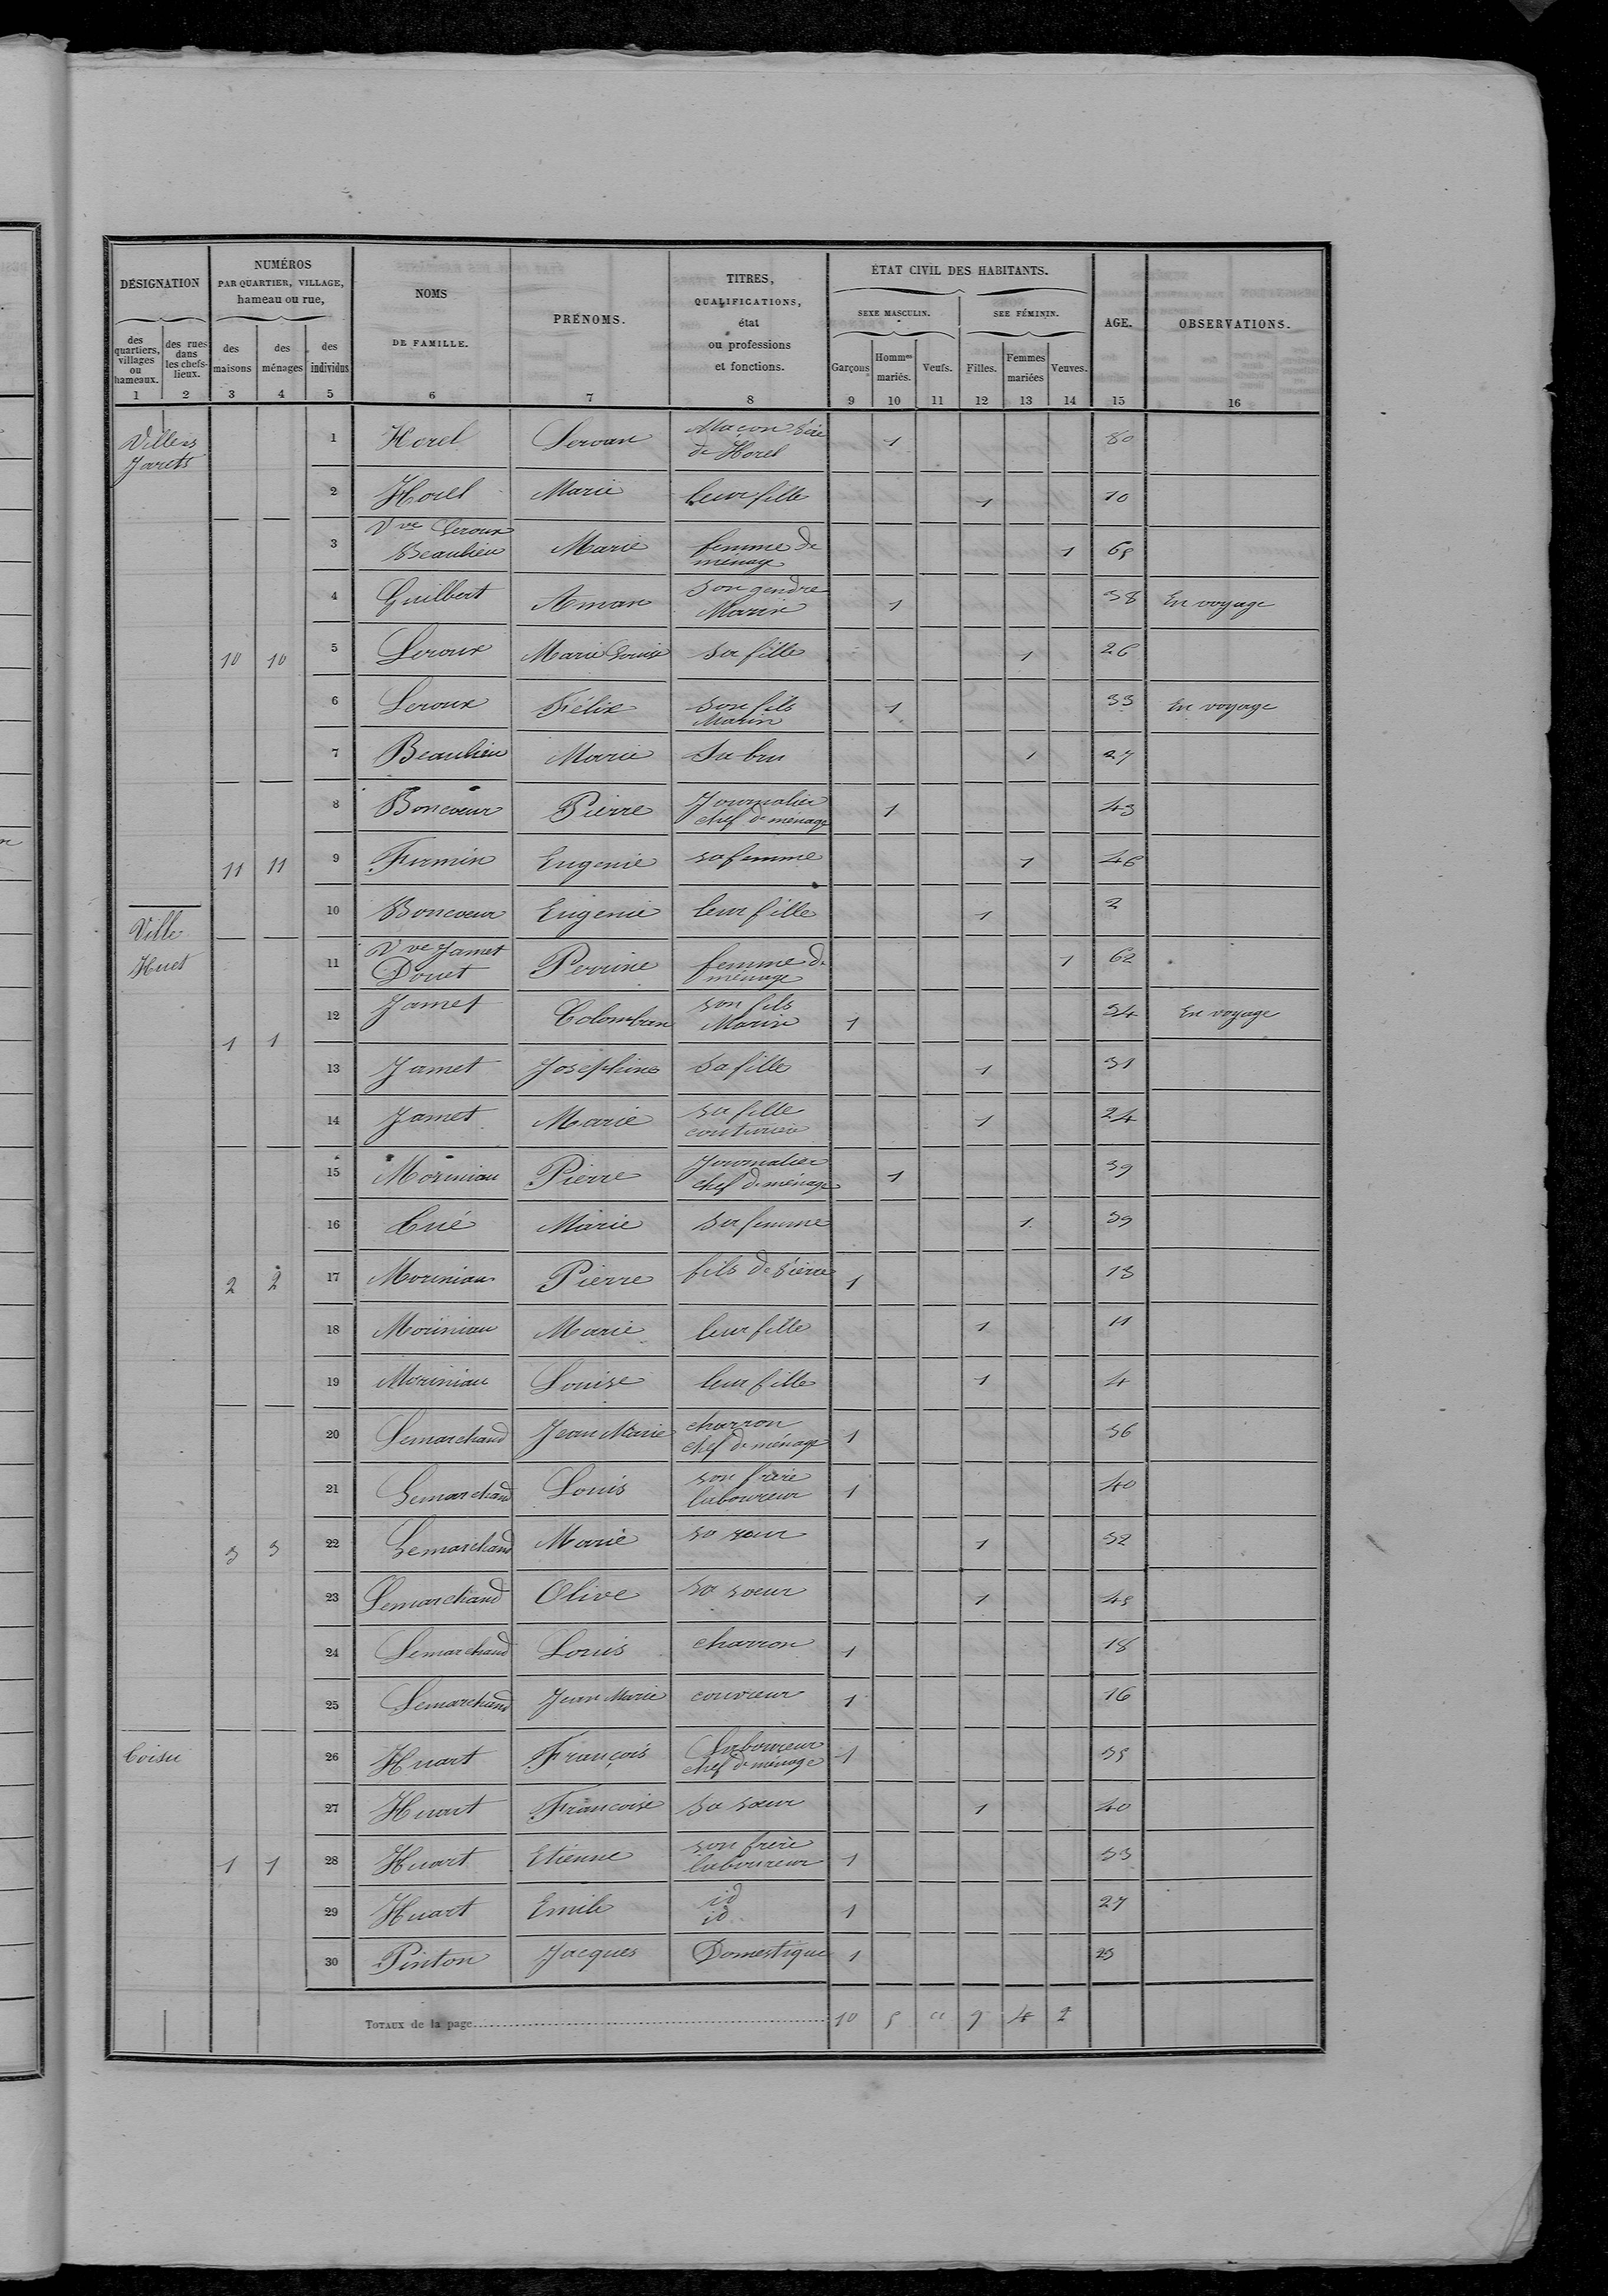 DÉSIGNATION
NUMÉROS
PAR QUARTIER, VILLAGE,
hameau ou rue,
NOMS
DE FAMILLE.
PRÉNOMS.
TITRES,
QUALIFICATIONS,
état
ou professions
et fonctions.
ÉTAT CIVIL DES HABITANTS.
SEXE MASCULIN.
SEE FÉMININ.
AGE.
OBSERVATIONS.
des quartiers, villages ou hameaux.
des rues dans les chefs-lieux.
des maisons
des ménages
des individus
Garçons
Hommes mariés.
Veufs.
Filles.
Femmes mariées
Veuves.
1 2 3 4 5 6 7 8 9 10 11 12 13 14 15 16
Villes Jarets
1 Horel Servan Maçon Père de Horel 1 80
2 Horel Marie leur fille 1 10
3 Vve Leroux Beaulieu Marie femme de ménage 1 65
4 Guilbert Aman son gendre Marin 1 38 En voyage
10 10 5 Leroux Marie Louise sa fille 1 26
6 Leroux Félix son fils Marin 1 33 En voyage
7 Beaulieu Marie Sa bru 1 27
8 Boncoeur Pierre Journalier chef de ménage 1 43
11 11 9 Firmin Eugenie sa femme 1 46
10 Boncoeur Eugenie leur fille 1 2
Ville Huet
11 Vve Jamet Douet Perrine femme de ménage 1 62
12 Jamet Colomban son fils Marin 1 34 En voyage
1 1
13 Jamet Josephine Sa fille 1 31
14 Jamet Marie sa fille couturière 1 24
15 Moriniau Pierre Journalier chef de ménage 1 39
16 Cué Marie sa femme 1 39
2 2 17 Moriniau Pierre fils de Pierre 1 13
18 Moriniau Marie leur fille 1 11
19 Moriniau Louise leur fille 1 4
20 Lemarchand Jean Marie charron chef de ménage 1 56
21 Lemarchand Louis son frère laboureur 1 40
3 3 22 Lemarchand Marie sa soeur 1 52
23 Lemarchand Olive sa soeur 1 45
24 Lemarchand Louis charron 1 18
25 Lemarchand Jean Marie couvreur 1 16
Coisu
26 Huart François Laboureur chef de ménage 1 35
27 Huart Francoise sa soeur 1 40
1 1 28 Huart Etienne son frère laboureur 1 33
29 Huart Emile id id 1 27
30 Pinton Jacques Domestique 1 25
TOTAUX de la page 10 5 " 9 4 2